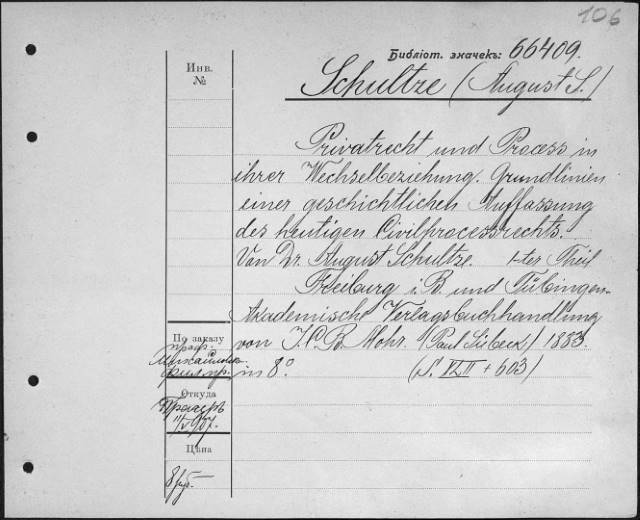 106
Библіот. значекъ: 66409.
Инв.
№
Schultze (August S.)
Privatrecht und Process in
ihrer Wechselbeziehung. Grundlinien
einer geschichtlichen Auffassung
des heutigen Civilprocessrechts.
Von Dr. August Schultze. 1-ter Theil
Freiburg i. B. und Tübingen.
Akademische Verlagsbuchhandlung
von J. C. B. Mohr. (Paul Siebeck) 1883.
in 8° (S. + 603)
По заказу
проф.
Откуда
1907.
Цѣна
8 руб.